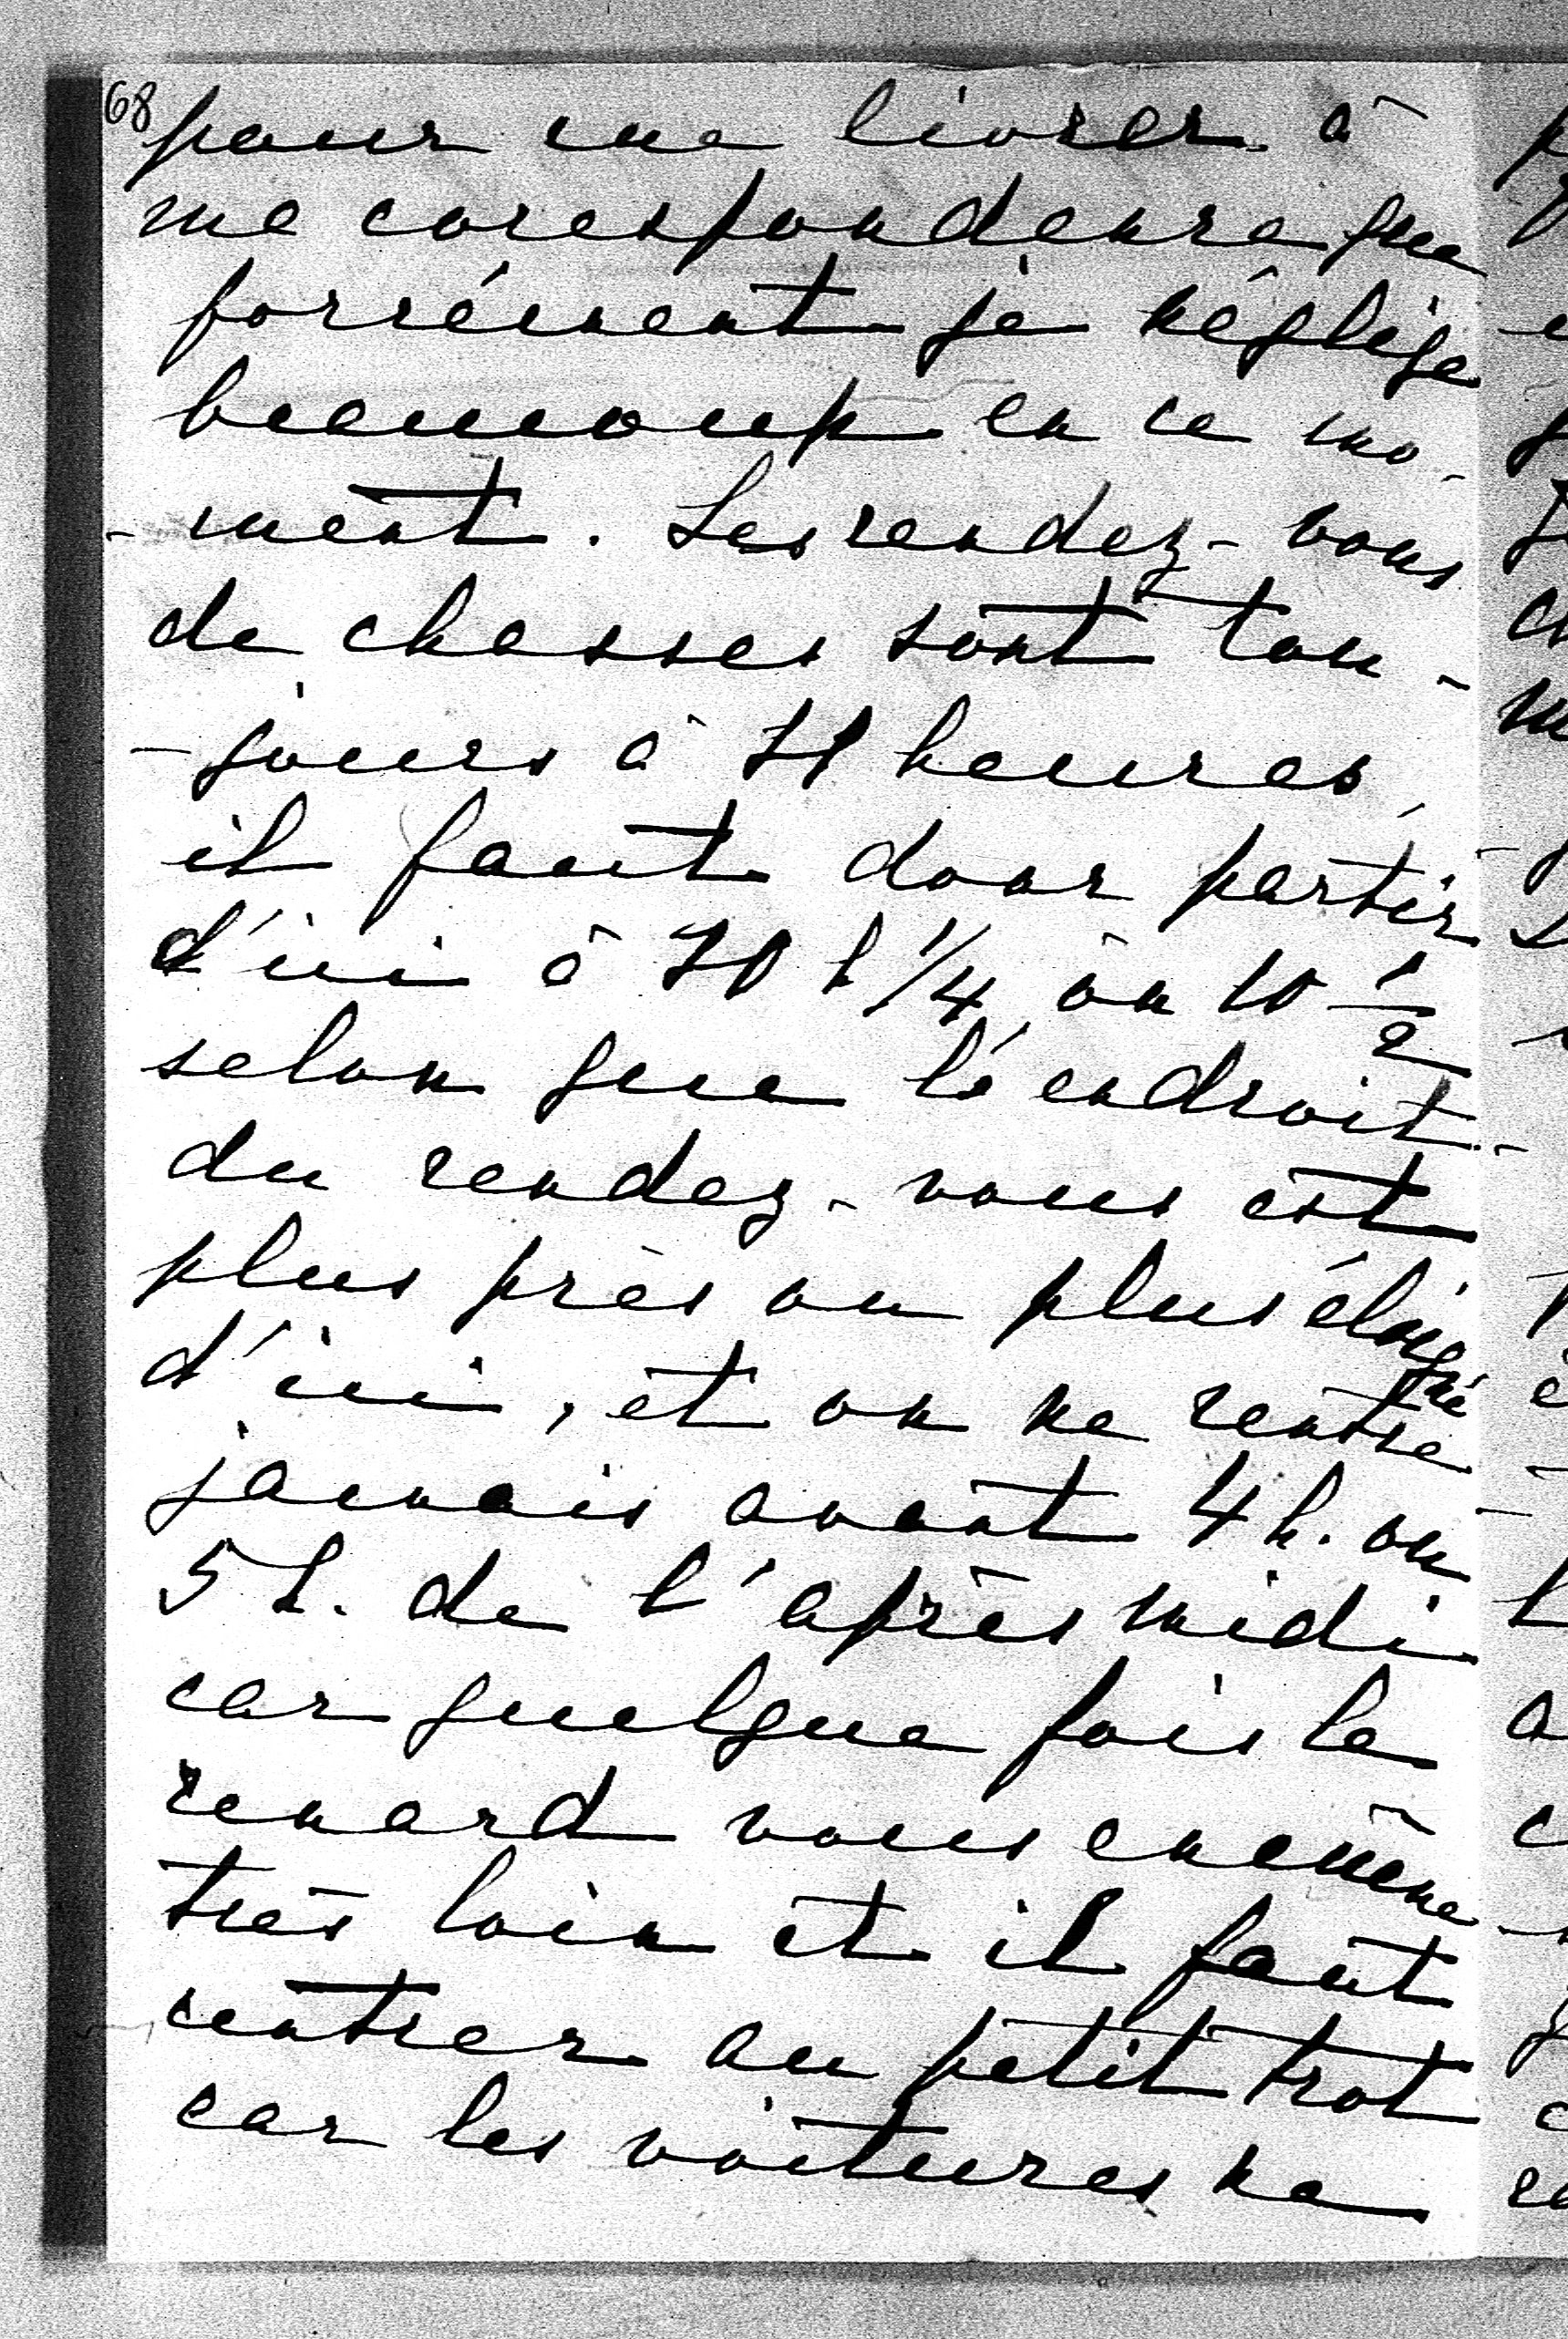 68
pour me livrer à
ma corespondence que
forcément je néglige
beaucoup en ce mo-
-ment. Les rendez-vous
de chasses sont tou-
-jours à 11 heures,
il faut donc partir
d'ici à 10 h 1/4 ou 10 1/2
selon que l'endroit
du rendez-vous est
plus près ou plus éloigné
d'ici, et on ne rentre
jamais avant 4 h. ou
5 h. de l'après midi
car quelque fois le
renard vous enmène
très loin et il faut
rentrer au petit trot
car les voitures ne